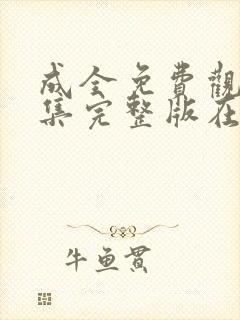 成全免費觀
集完整版在
牛鱼贯